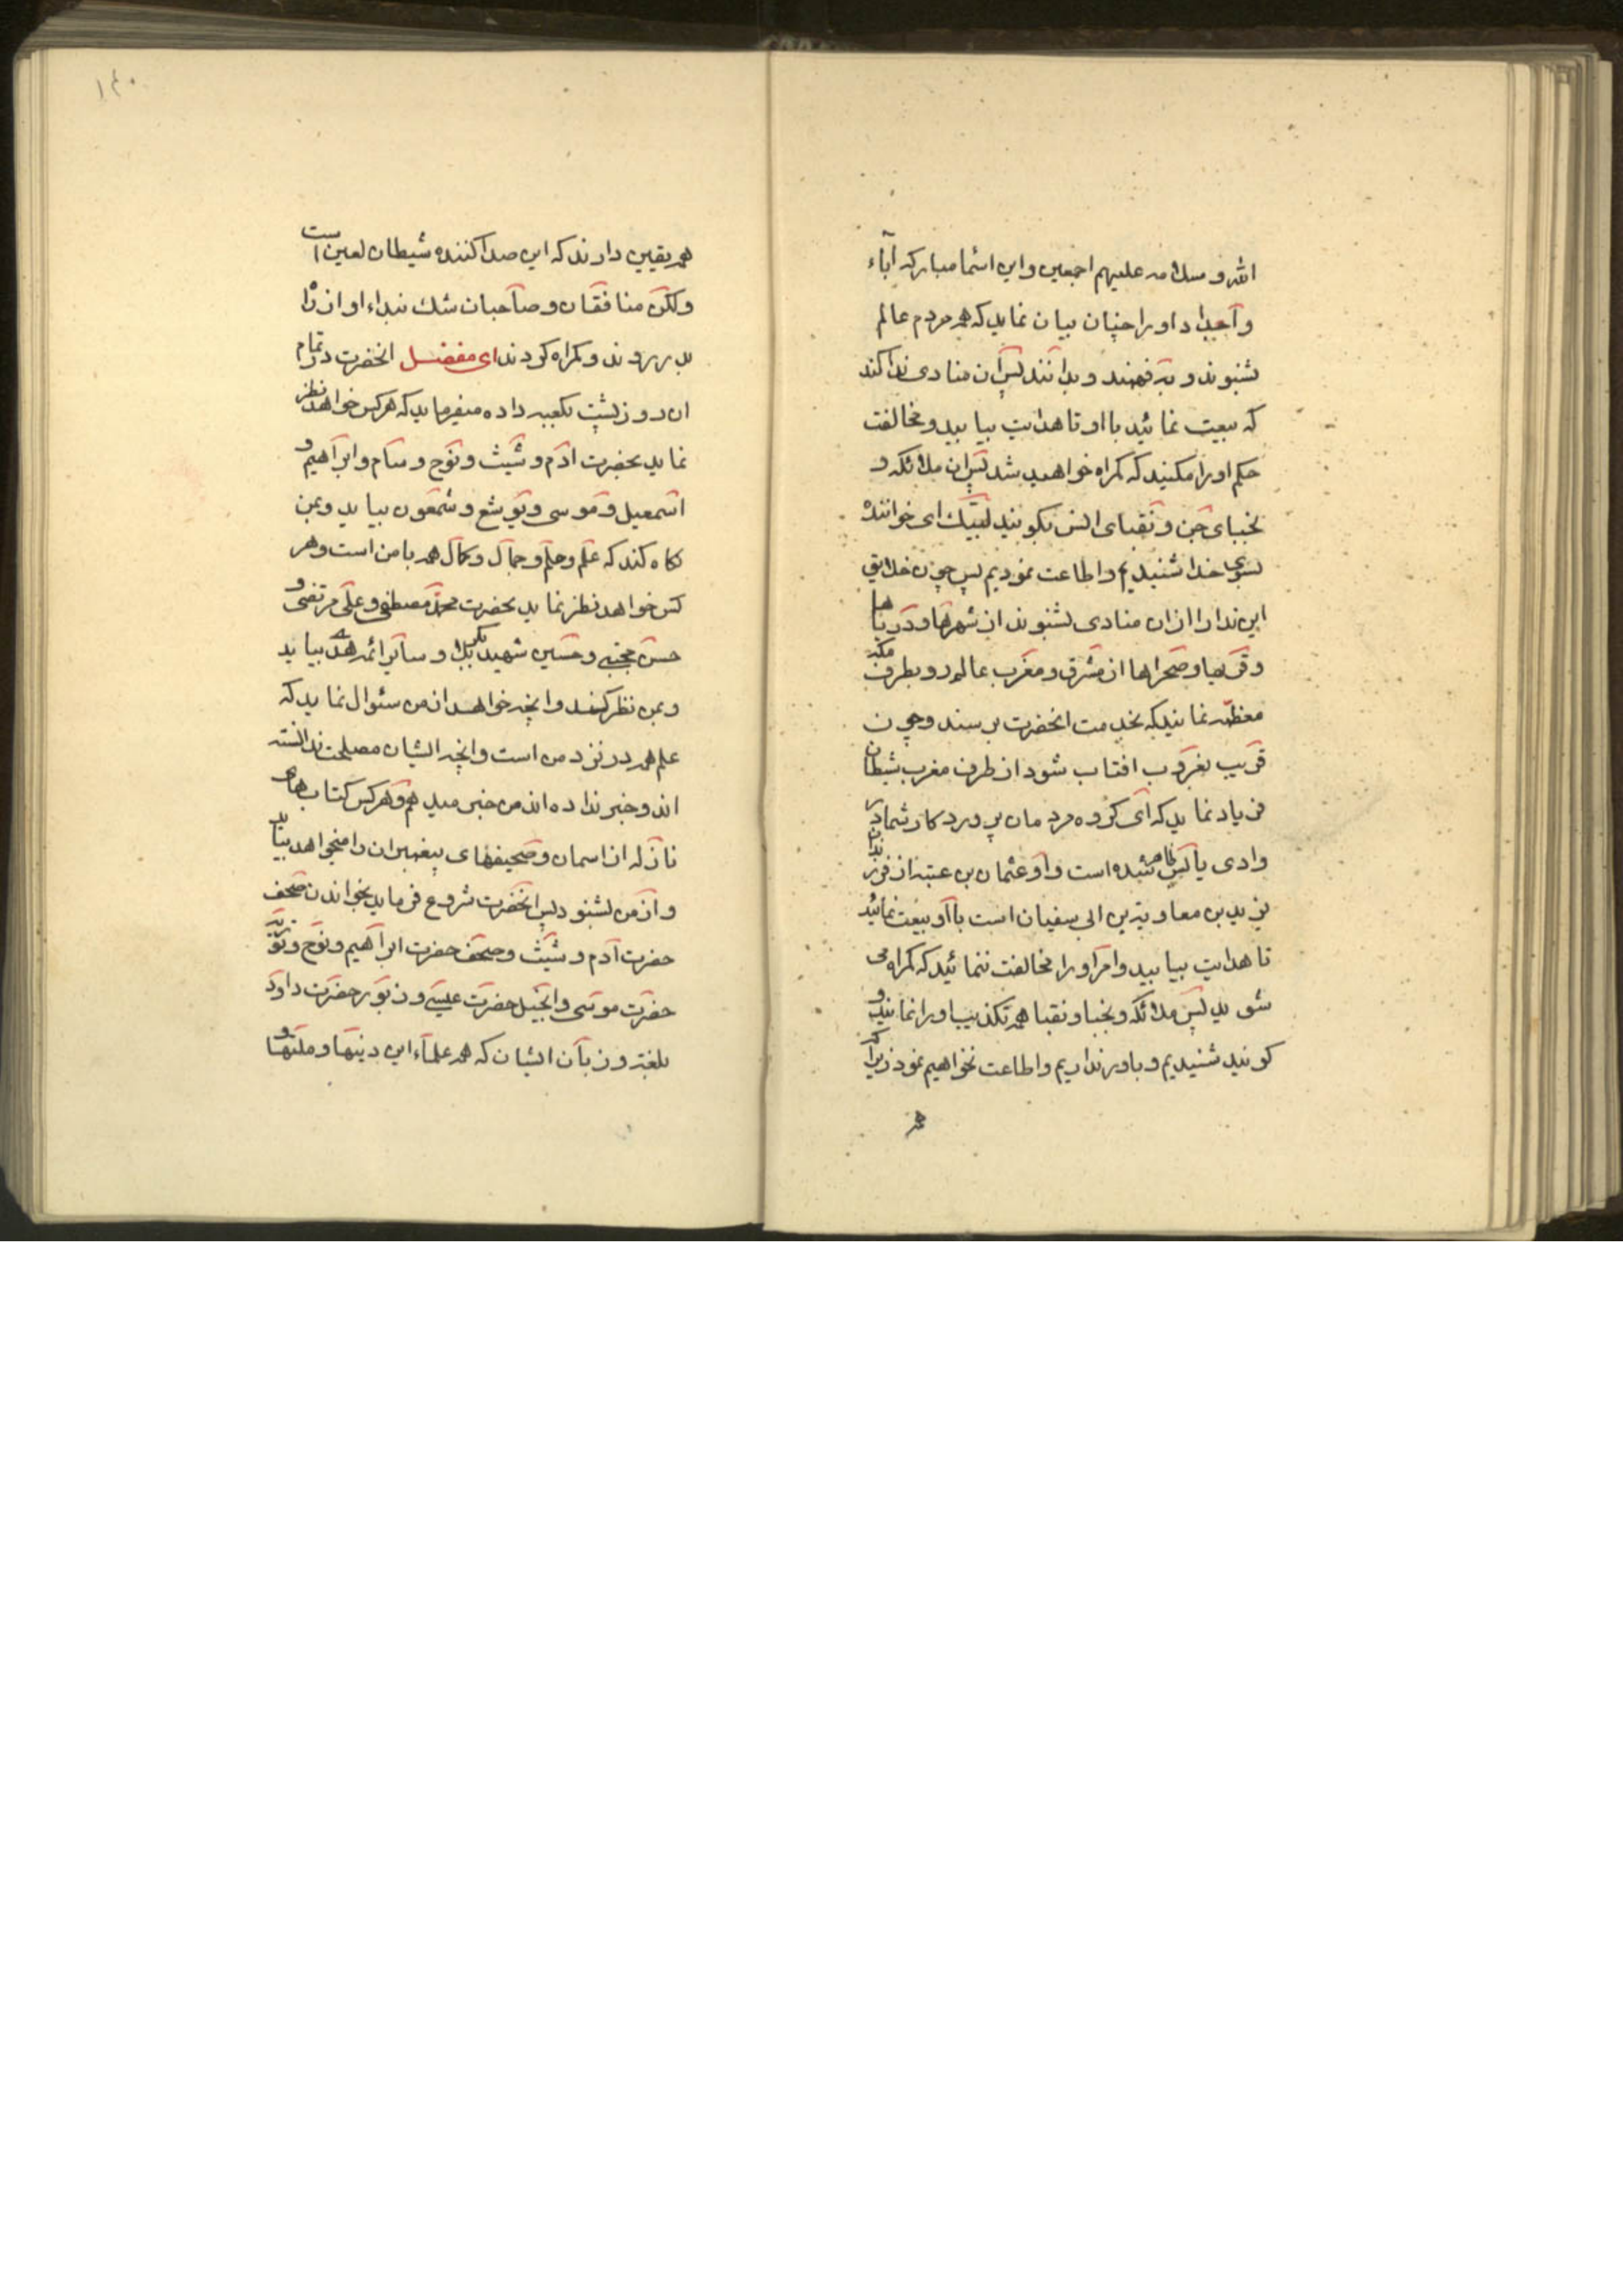 الله و سلامه علیهم اجمعین و این اسما مبارکه آباء
و اجداد او را چنان بیان نماید که همه مردم عالم
بشنوند و بفهمند و بدانند پس آن منادی ندا کند
که بیعت نمائید با او تا هدایت بیابید و مخالفت
حکم او را مکنید که کمراه خواهید شد پس ان ملائکه و
نجبای جن و نقبای انس بکویند لبیک ای خواننده
بسوی خدا شنیدیم و اطاعت نمودیم پس چون خلایق
این ندا را از ان منادی بشنوند از شهرها و دریاها
و قریها و صحراها از مشرق و مغرب عالم رو بطرف مکه
معظمه نمایند که بخدمت انحضرت برسند و چون
قریب بغروب افتاب شود از طرف مغرب شیطان
فریاد نماید که ای کروه مردمان پروردکار شما در
وادی یابس ظاهر شده است و او عثمان بن عتبه از فرزندان
یزید بن معاویة بن ابی سفیان است با او بیعت نمائید
تا هدایت بیابید و امر او را مخالفت ننمائید که کمراه می
شوید پس ملائکه و نجبا و نقبا همه تکذیب او را نمایند و
کویند شنیدیم و باور نداریم و اطاعت نخواهیم نمود زیرا که
همه
۱۴۰
همه یقین دارند که این صدا کننده شیطان لعین است
ولکن منافقان و صاحبان شک بنداء او از راه
بدر روند و کمراه کردند ای مفضل انحضرت در تمام
ان روز پشت بکعبه داده میفرماید که هر کس خواهد نظر
نماید بحضرت ادم و شیث و نوح و سام و ابراهیم و
اسمعیل و موسی و یوشع و شمعون بیاید و بمن
نکاه کند که علم و حلم و جمال و کمال همه با من است و هر
کس خواهد نظر نماید بحضرت محمد مصطفی و علی مرتضی و
حسن مجتبی و حسین شهید بکربلا و سایر ائمه هدی بیاید
و بمن نظر کند و انچه خواهد از من سئوال نماید که
علم همه در نزد من است و انچه ایشان مصلحت ندانسته
اند و خبر نداده اند من خبر میدهم و هر کس کتاب های
نازله از اسمان و صحیفهای پیغمبران را میخواهد بیاید
و از من بشنود پس انحضرت شروع فرماید بخواندن صحف
حضرت آدم و شیث و صحف حضرت ابراهیم و نوح و توریة
حضرت موسی و انجیل حضرت عیسی و زبور حضرت داود
بلغة و زبان ایشان که همه علماء این دینها و ملتها و